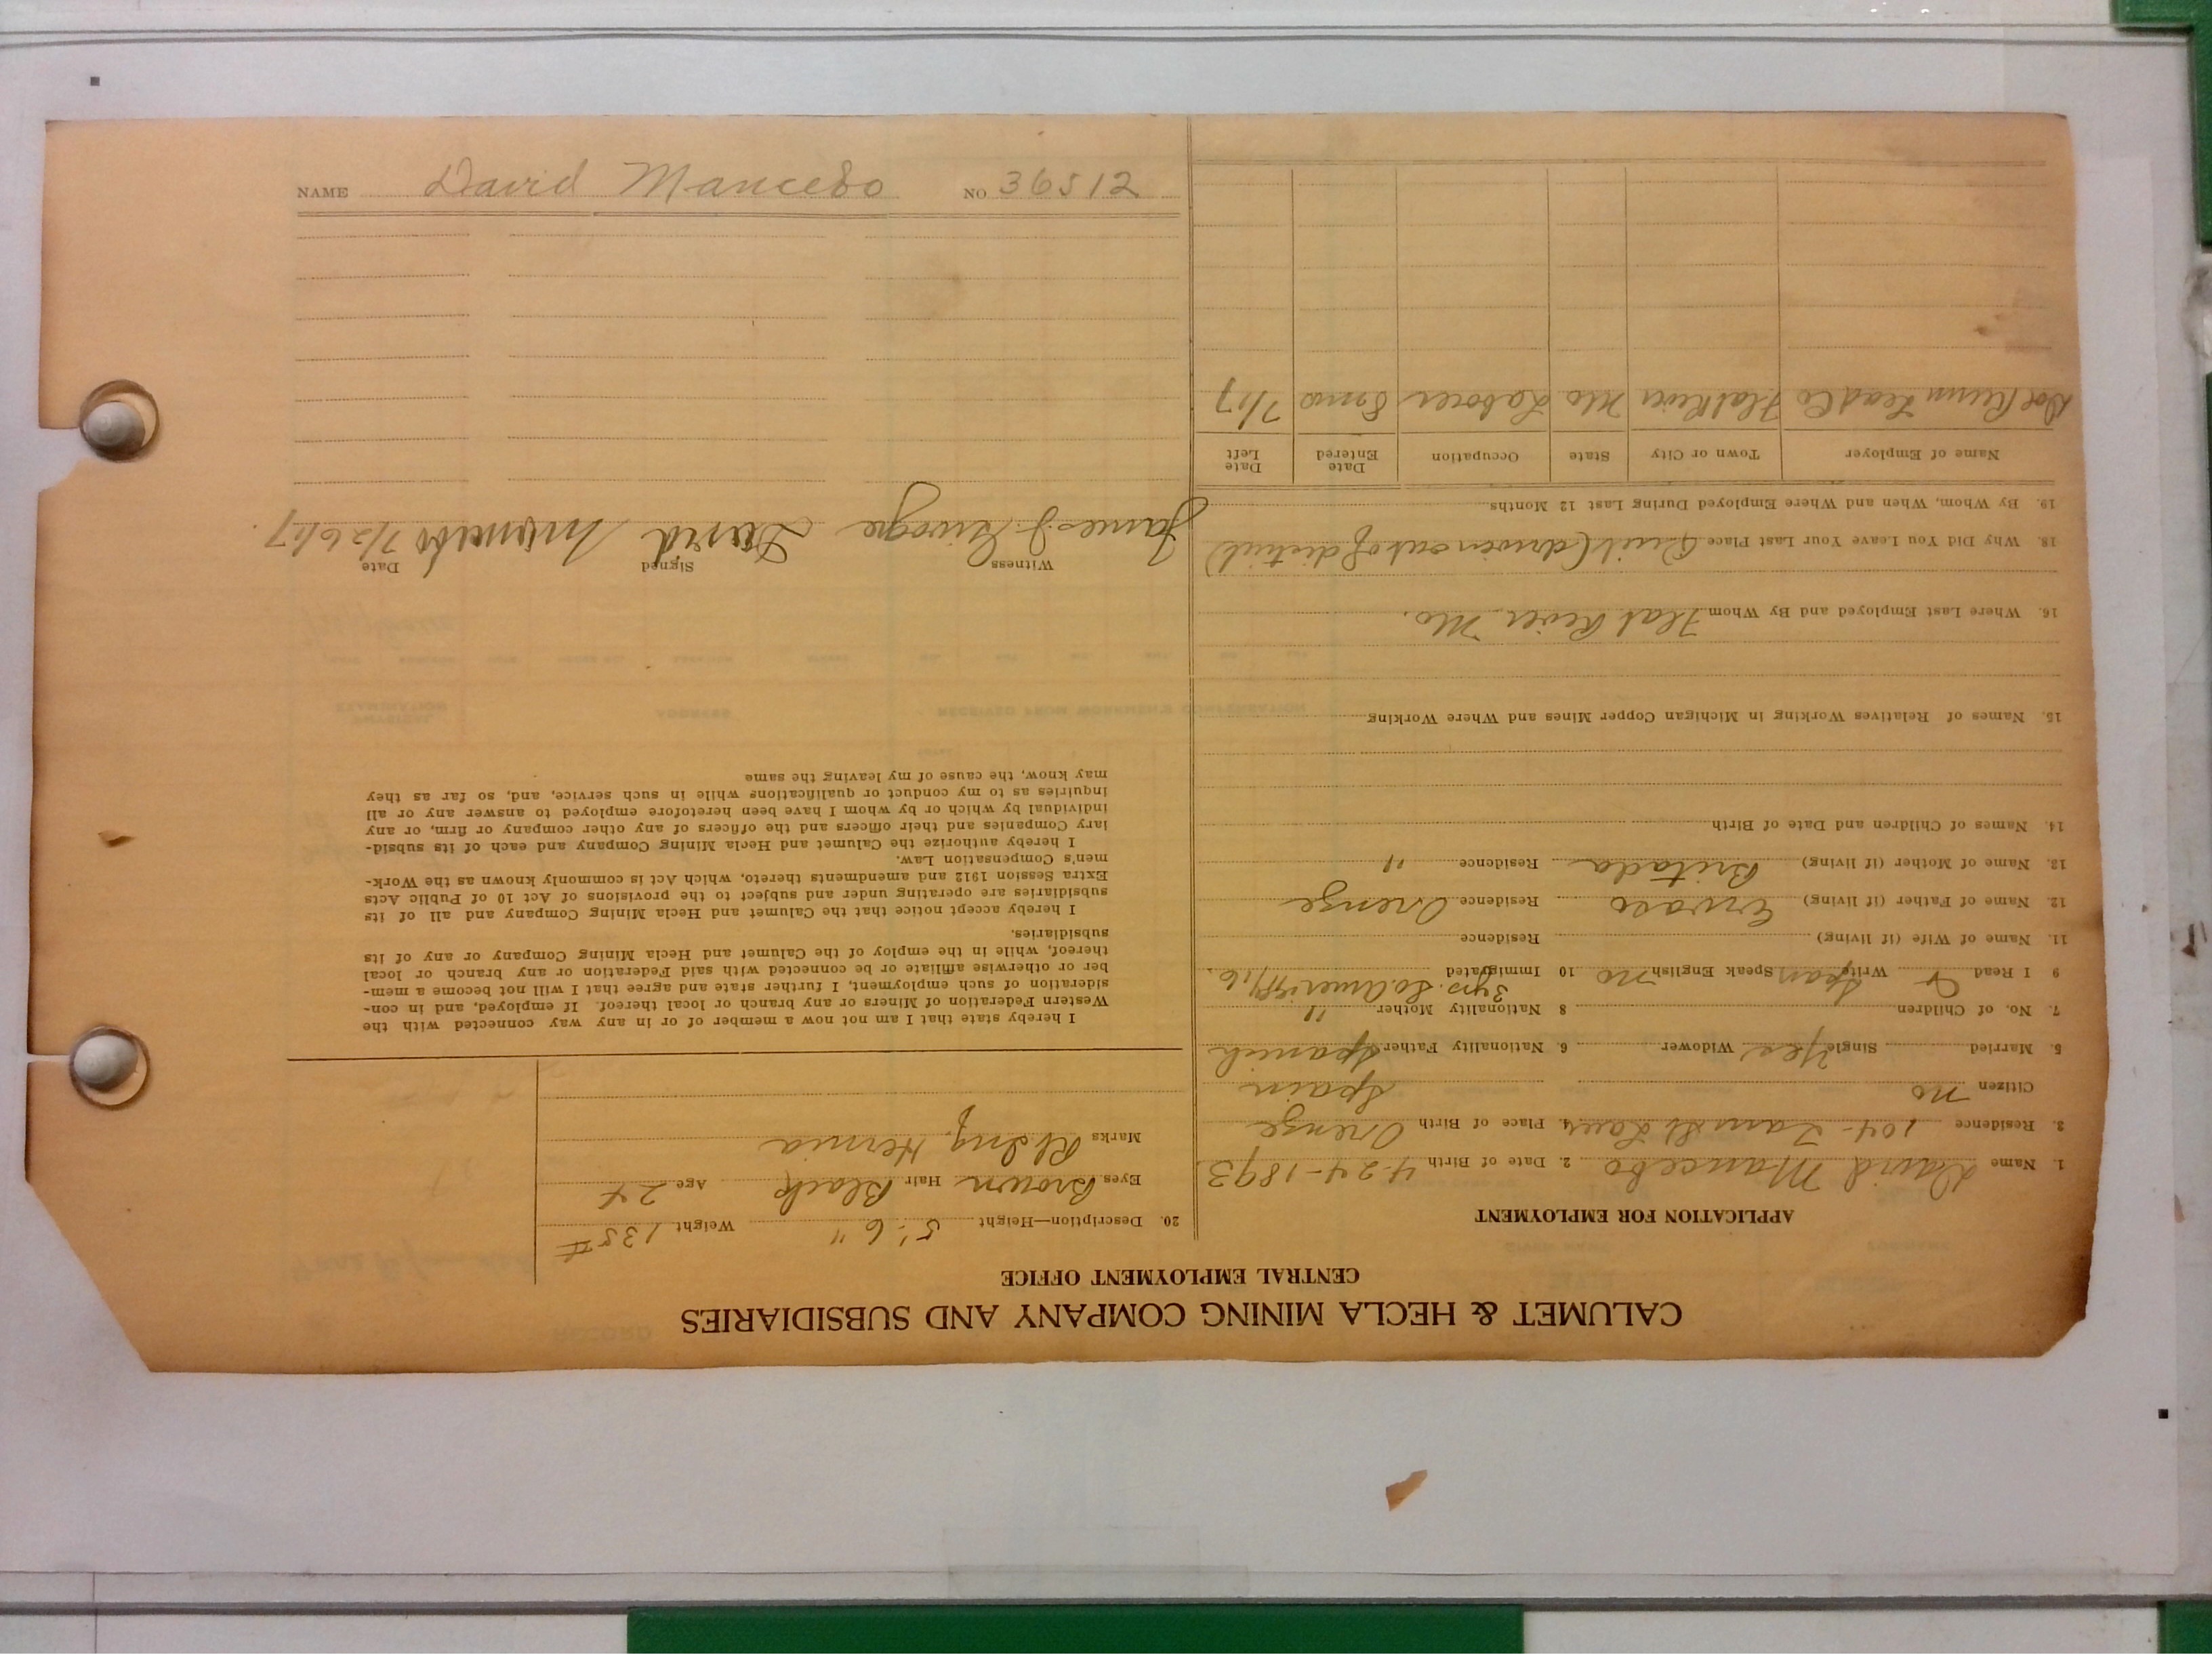 CALUMET & HECLA MINING COMPANY AND SUBSIDIARIES
CENTRAL EMPLOYMENT OFFICE
APPLICATION FOR EMPLOYMENT
1. Name David Mancebo 2. Date of Birth 4-24-1893
3. Residence 104- 4. Place of Birth Orense
Citizen no Spain
5. Married Single Yes Widower 6. Nationality Father Spanish
7. No. of Children 8 Nationality Mother "
9 I Read Write Span Speak English no 10 Immigrated 3 yrs. So. Amer
11. Name of Wife (if living) Residence
12. Name of Father (if living) Residence Orense
13. Name of Mother (if living) Residence "
14. Names of Children and Date of Birth
15. Names of Relatives Working in Michigan Copper Mines and Where Working
16. Where Last Employed and By Whom Flat River, Mo.
18. Why Did You Leave Your Last Place Quit (driven out of district)
19. By Whom, When and Where Employed During Last 12 Months
Name of Employer Town or City State Occupation Date Entered Date Left
Doe Run Lead Co Flat River Mo Laborer 8 mos 7/17
20. Description—Height 5' 6" Weight 135#
Eyes Brown Hair Black Age 24
Marks Rt Ing. Hernia
I hereby state that I am not now a member of or in any way connected with the
Western Federation of Miners or any branch or local thereof. If employed, and in con-
sideration of such employment, I further state and agree that I will not become a mem-
ber or otherwise affiliate or be connected with said Federation or any branch or local
thereof, while in the employ of the Calumet and Hecla Mining Company or any of its
subsidiaries.
I hereby accept notice that the Calumet and Hecla Mining Company and all of its
subsidiaries are operating under and subject to the provisions of Act 10 of Public Acts
Extra Session 1912 and amendments thereto, which Act is commonly known as the Work-
men's Compensation Law.
I hereby authorize the Calumet and Hecla Mining Company and each of its subsid-
iary Companies and their officers and the officers of any other company or firm, or any
individual by which or by whom I have been heretofore employed to answer any or all
inquiries as to my conduct or qualifications while in such service, and, so far as they
may know, the cause of my leaving the same
Witness Signed Date
James J. David Mancebo 7/26/17
NAME David Mancebo NO 36512